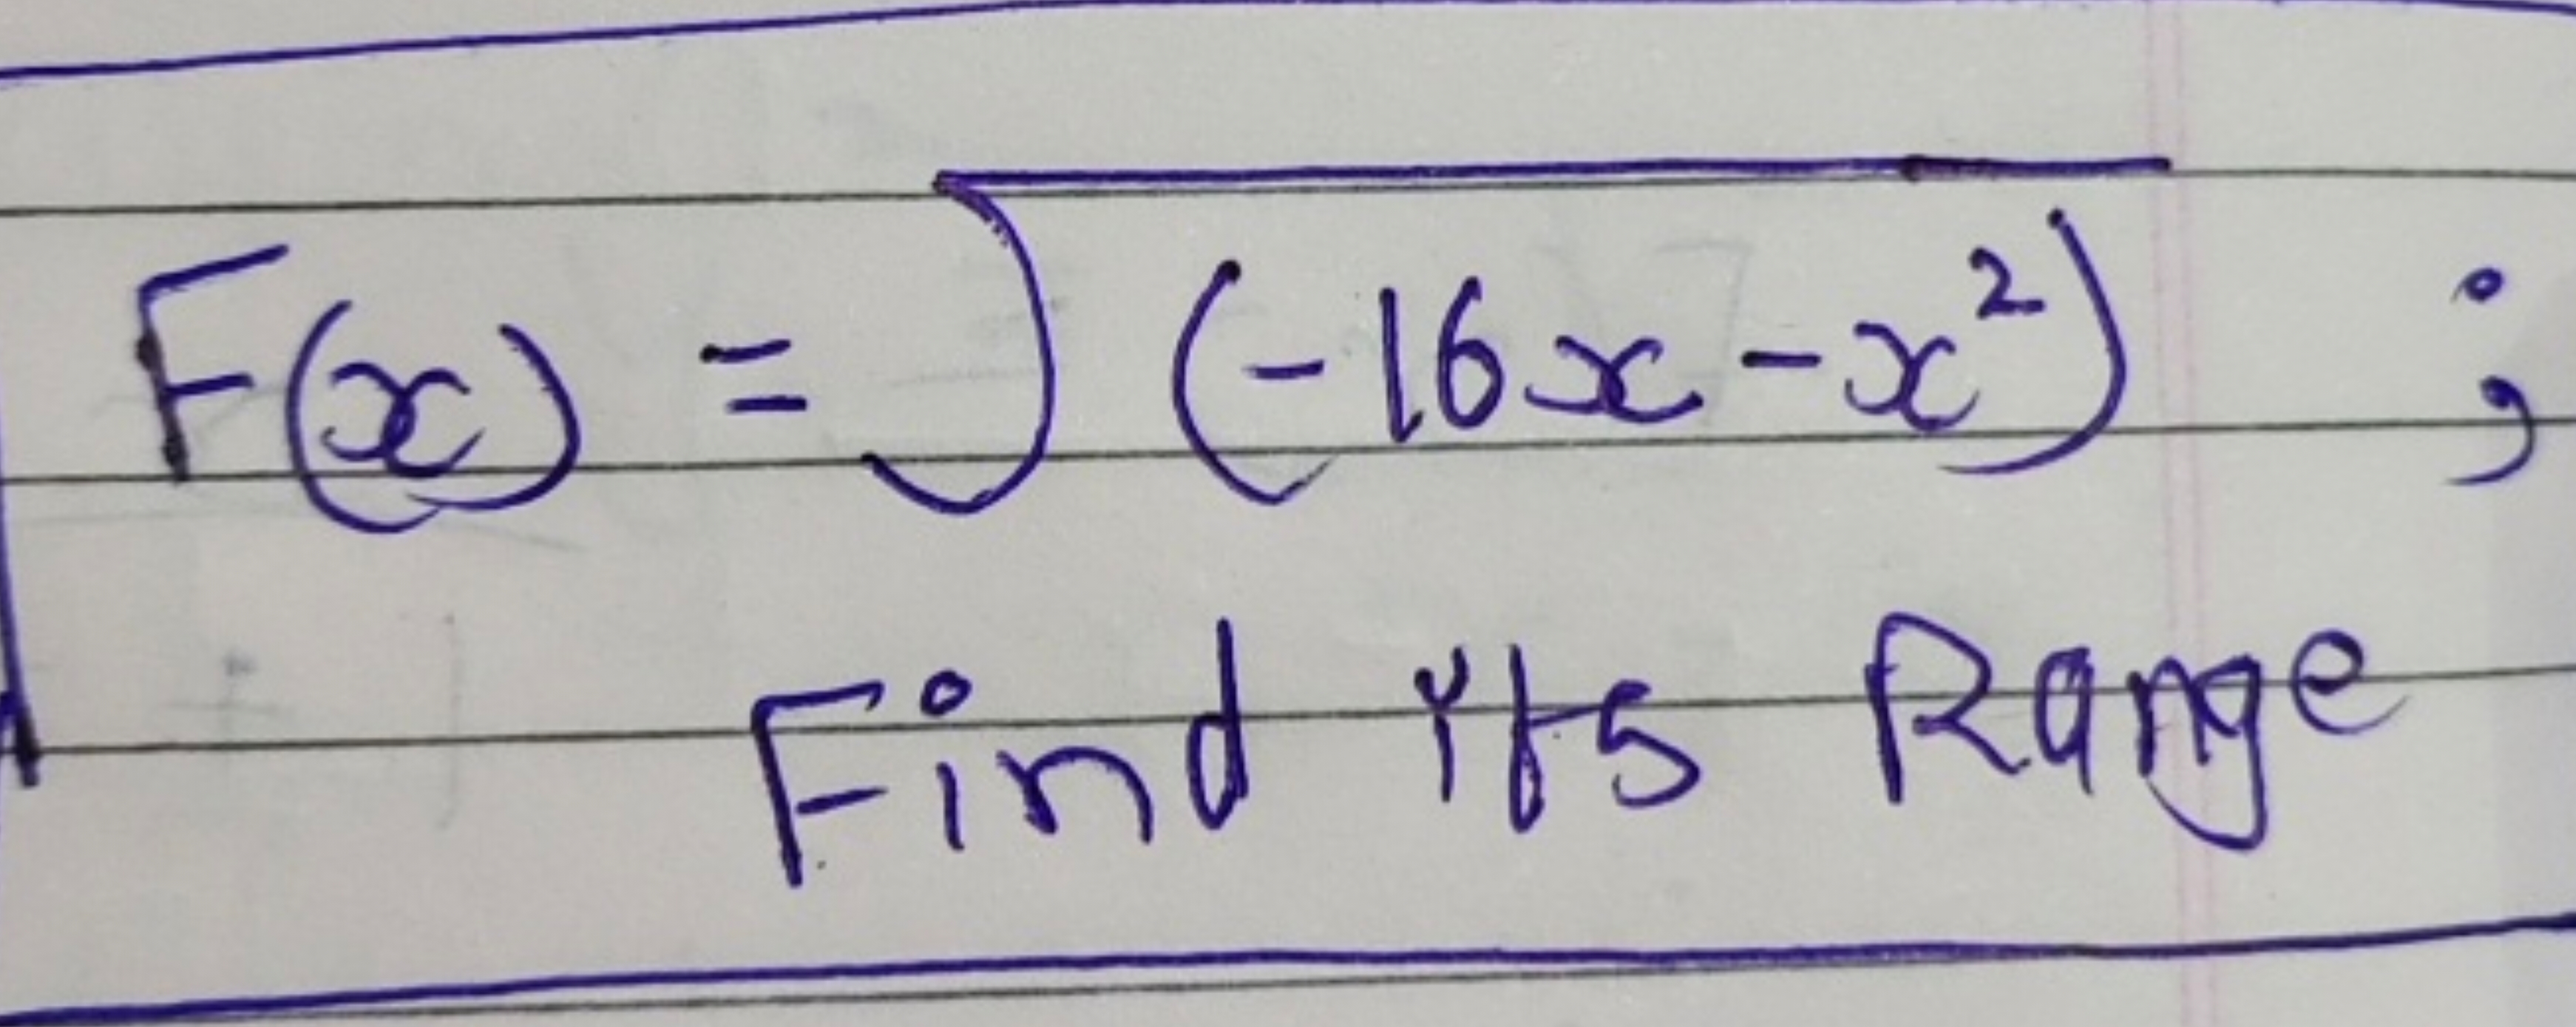 F(x) = √(-16x - x²) ;
Find its Range